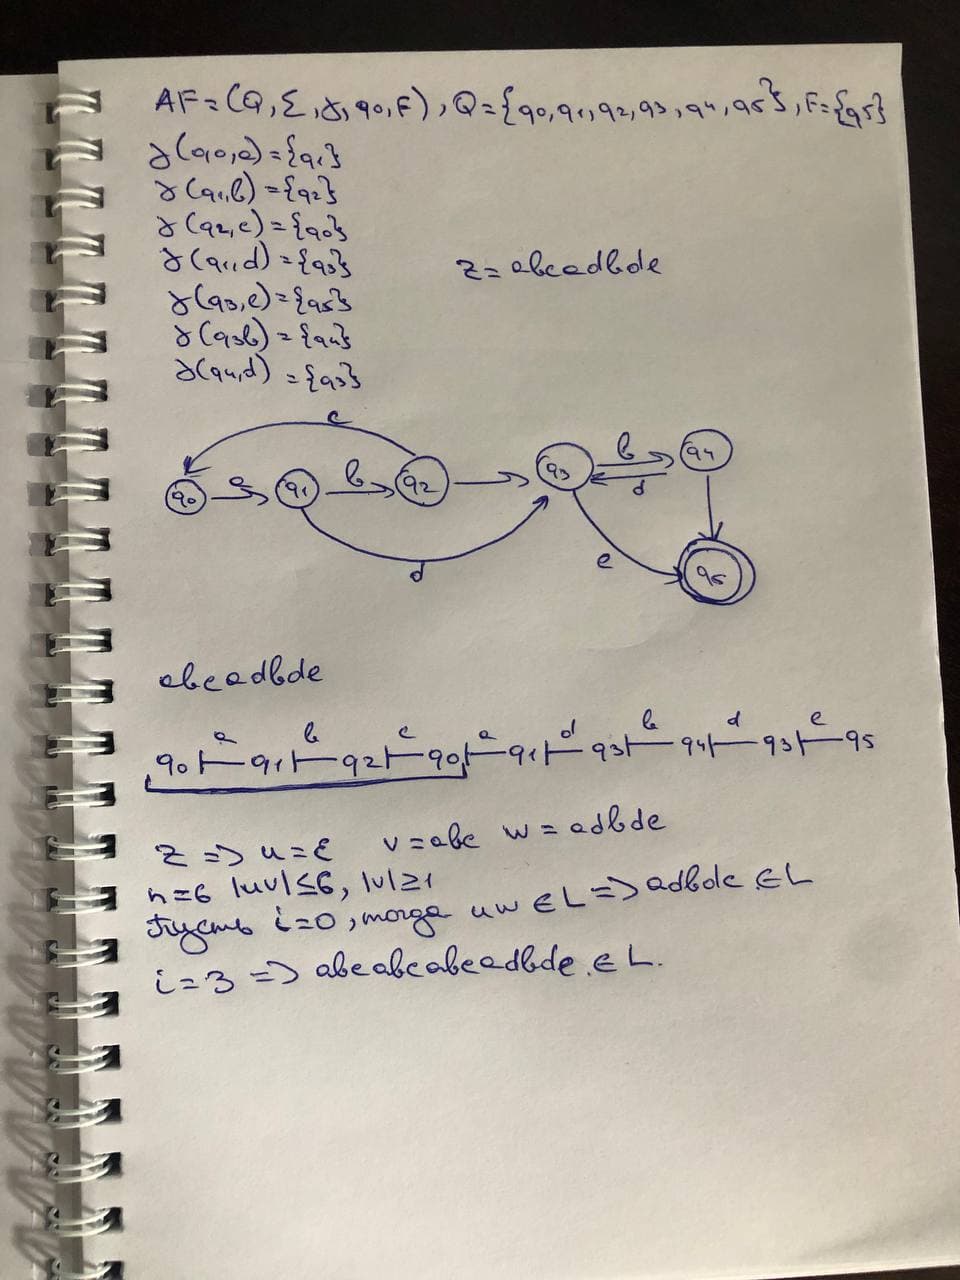 AF=(Q,Σ,γ,q0,F), Q={q0,q1,q2,q3,q4,q5}, F={q5}
γ(q0,a)={q1}
γ(q1,b)={q2}
γ(q2,c)={q0}
γ(q1,d)={q3}
z=abcadbde
γ(q3,e)={q5}
γ(q3b)={q4}
γ(q4,d)={q3}
c
q0 a q1 b q2 q3 b d q4
d e q5
abcadbde
a b c a d b d e
q0 ⊢ q1 ⊢ q2 ⊢ q0 ⊢ q1 ⊢ q3 ⊢ q4 ⊢ q3 ⊢ q5
z => u=ε v=abc w=adbde
n=6 |uv|≤6, |v|≥1
Пусть i=0, тогда uw ∈ L => adbde ∈ L
i=3 => abcabcabcadbde ∈ L.